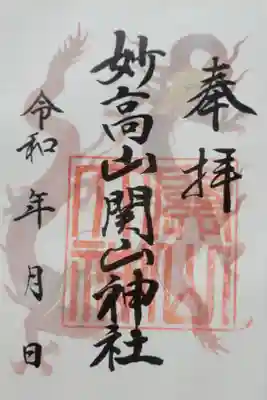 奉拝
妙高山関山神社
令和 年 月 日